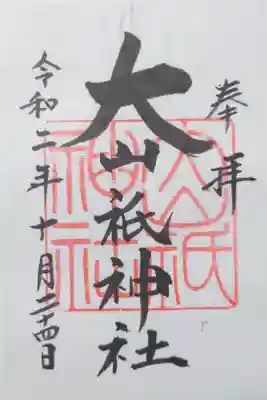 奉拝
大山祇神社
令和二年十月二十四日
大山祇神社